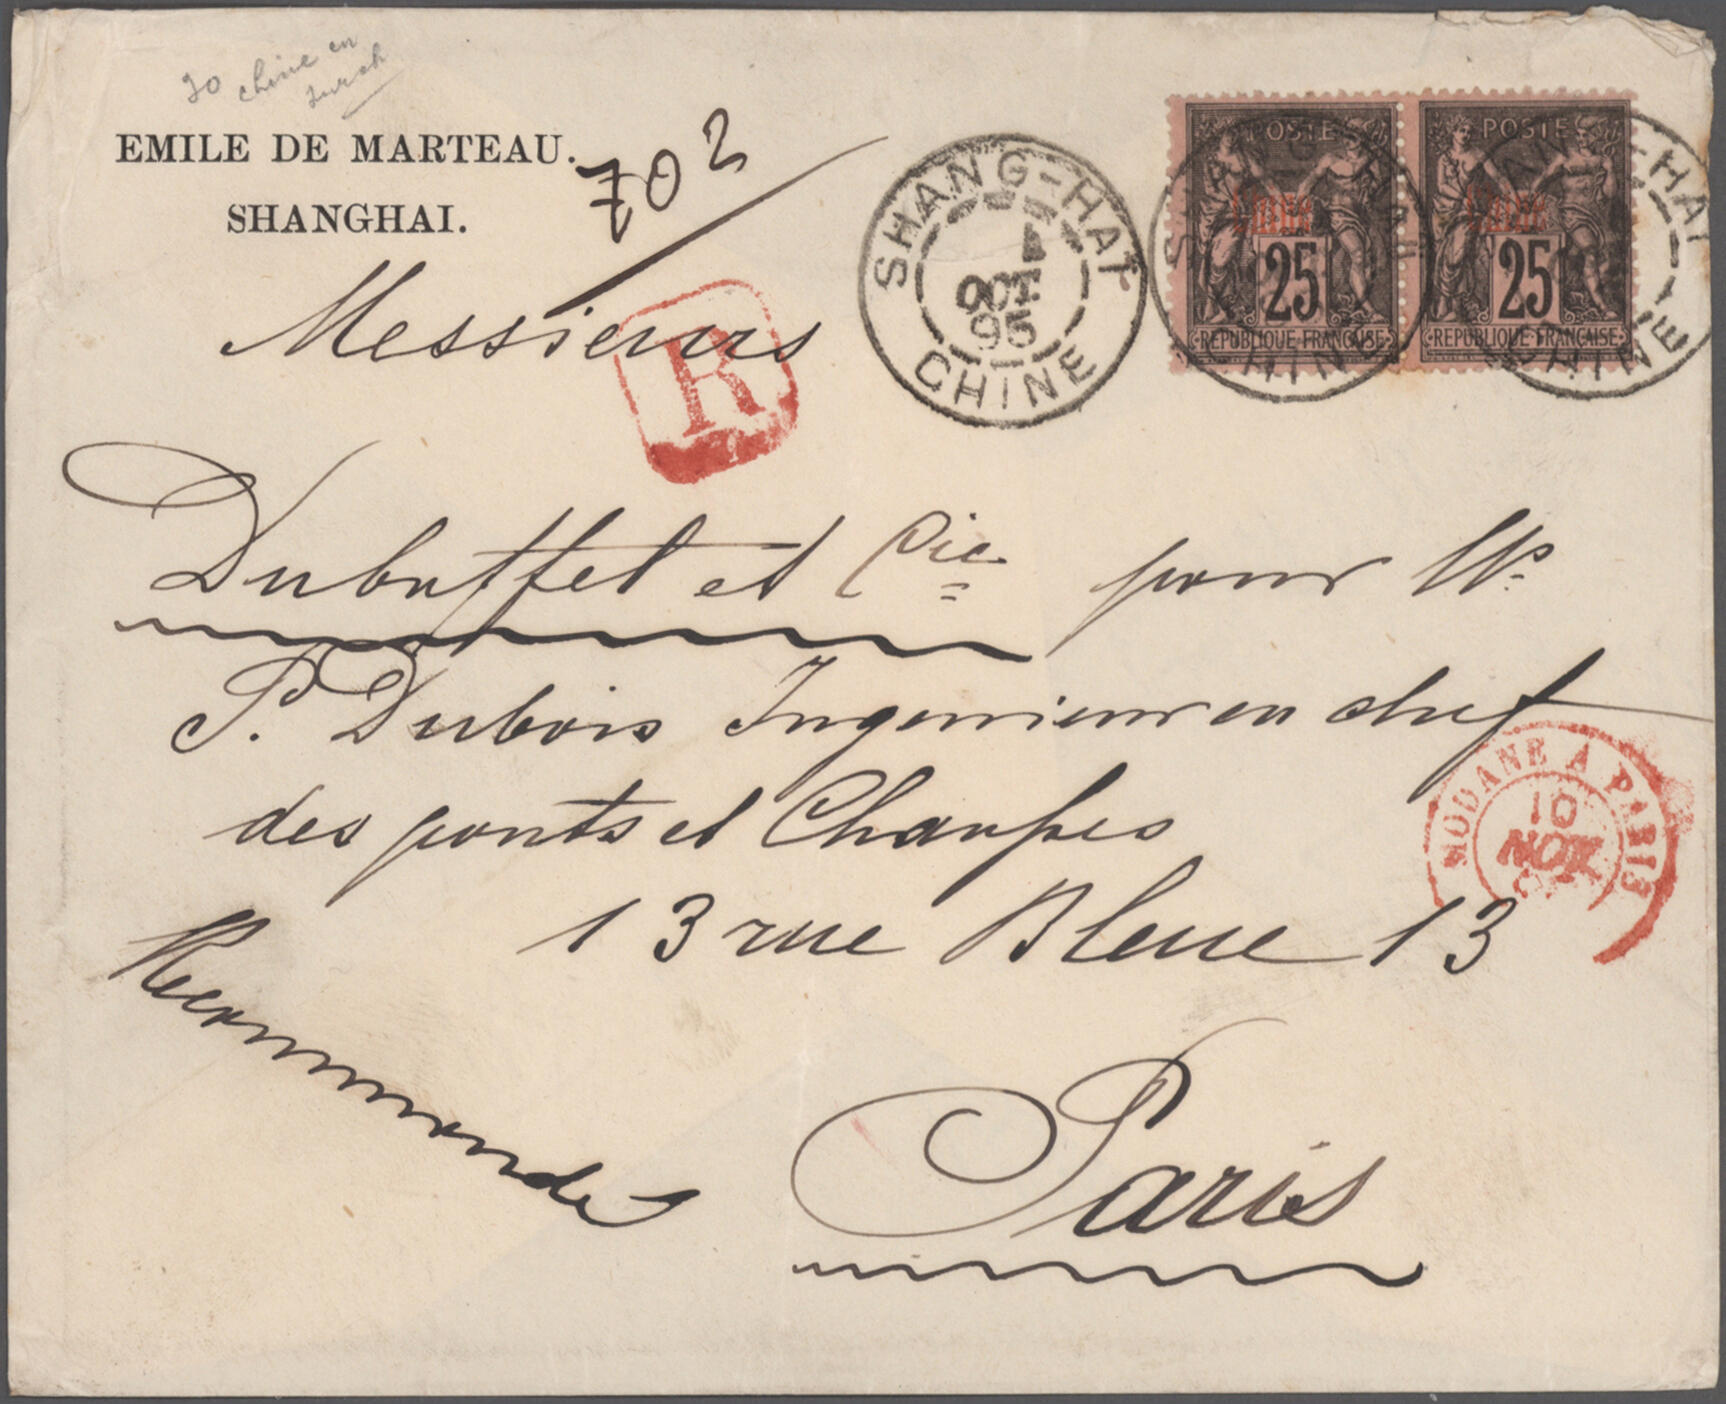 chine en
EMILE DE MARTEAU.
SHANGHAI.
702
Messieurs
R
SHANG-HAI
1
OCT.
95
CHINE
POSTE
Chine
25
REPUBLIQUE FRANÇAISE
POSTE
Chine
25
REPUBLIQUE FRANÇAISE
SHANG-HAI
CHINE
SHANG-HAI
CHINE
Dubuffet et Cie pour Mr
P. Dubois Ingenieur en chef
des ponts et Chaussées
13 rue Bleue 13
MODANE A PARIS
10
NOV
Recommandée
Paris